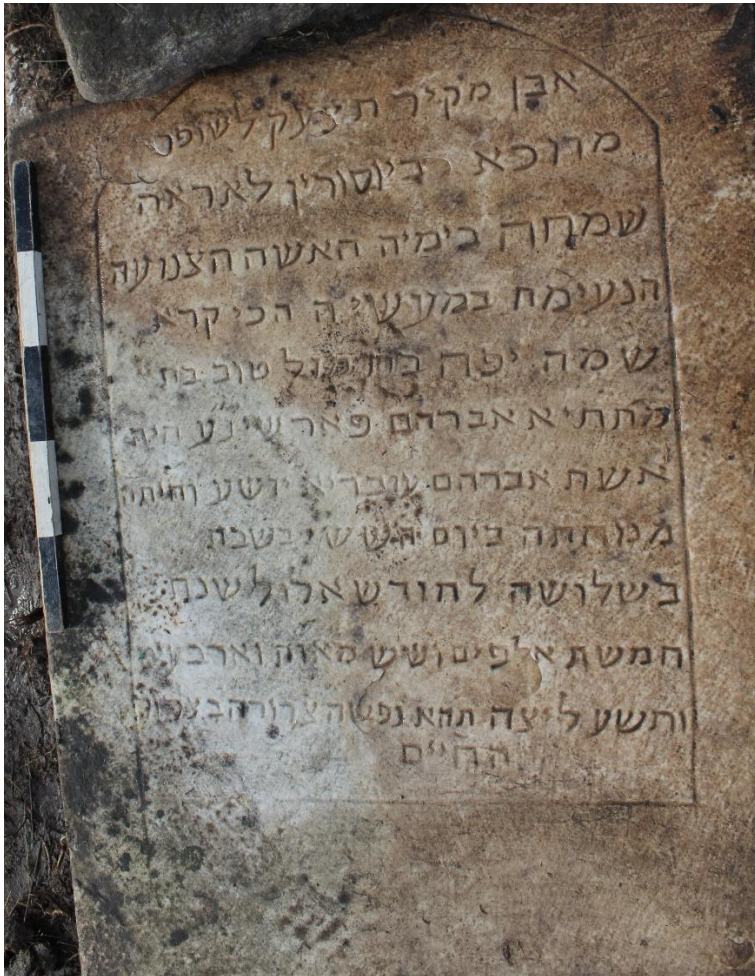 אבן מקיר תיצעק לשופט
מדוכא ביוסורין לא ראה
שמחה בימיה האשה הצנועה
הנעימה במעשיה הכי קרא
שמה יפה במזל טוב בת
מתתיא אברהם
אשת אברהם עובדיא יושע והיתה
מנוחתה ביום הששי בשבת
בשלושה לחודש אלול שנת
חמשת אלפים ושש מאות וארבעי
ותשע ליצה תהא נפשה צרורה בצרור
החיים